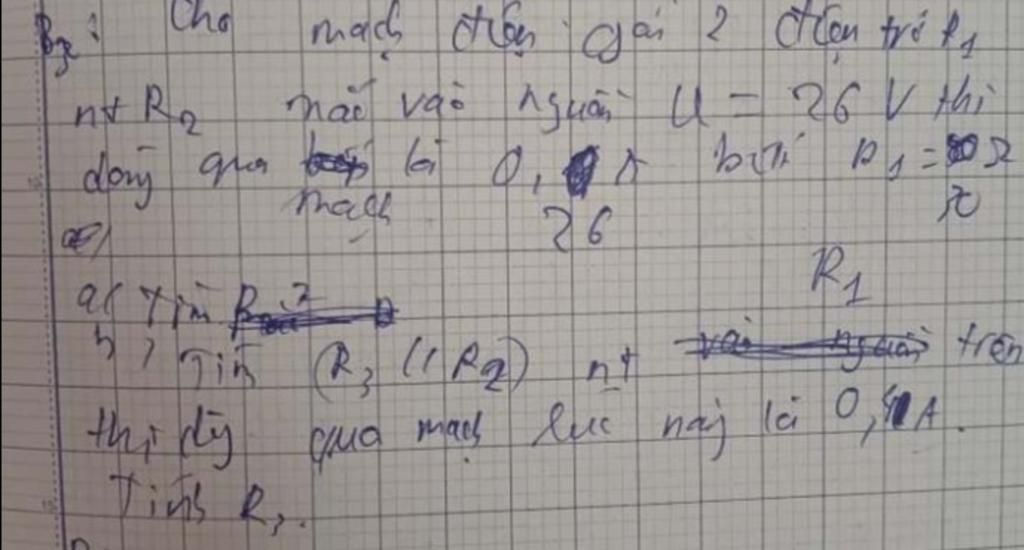 B2: Cho mạch điện gồi 2 điện trở R1
nt R2 mắc vào nguồn U = 26 V thì
dòng qua mạch là 0,26 A biết R1 = Ω
a) Tìm
b) Tìm (R3 // R2) nt R1 trên
thì dg qua mạch lúc này là 0, A.
Tính R3.